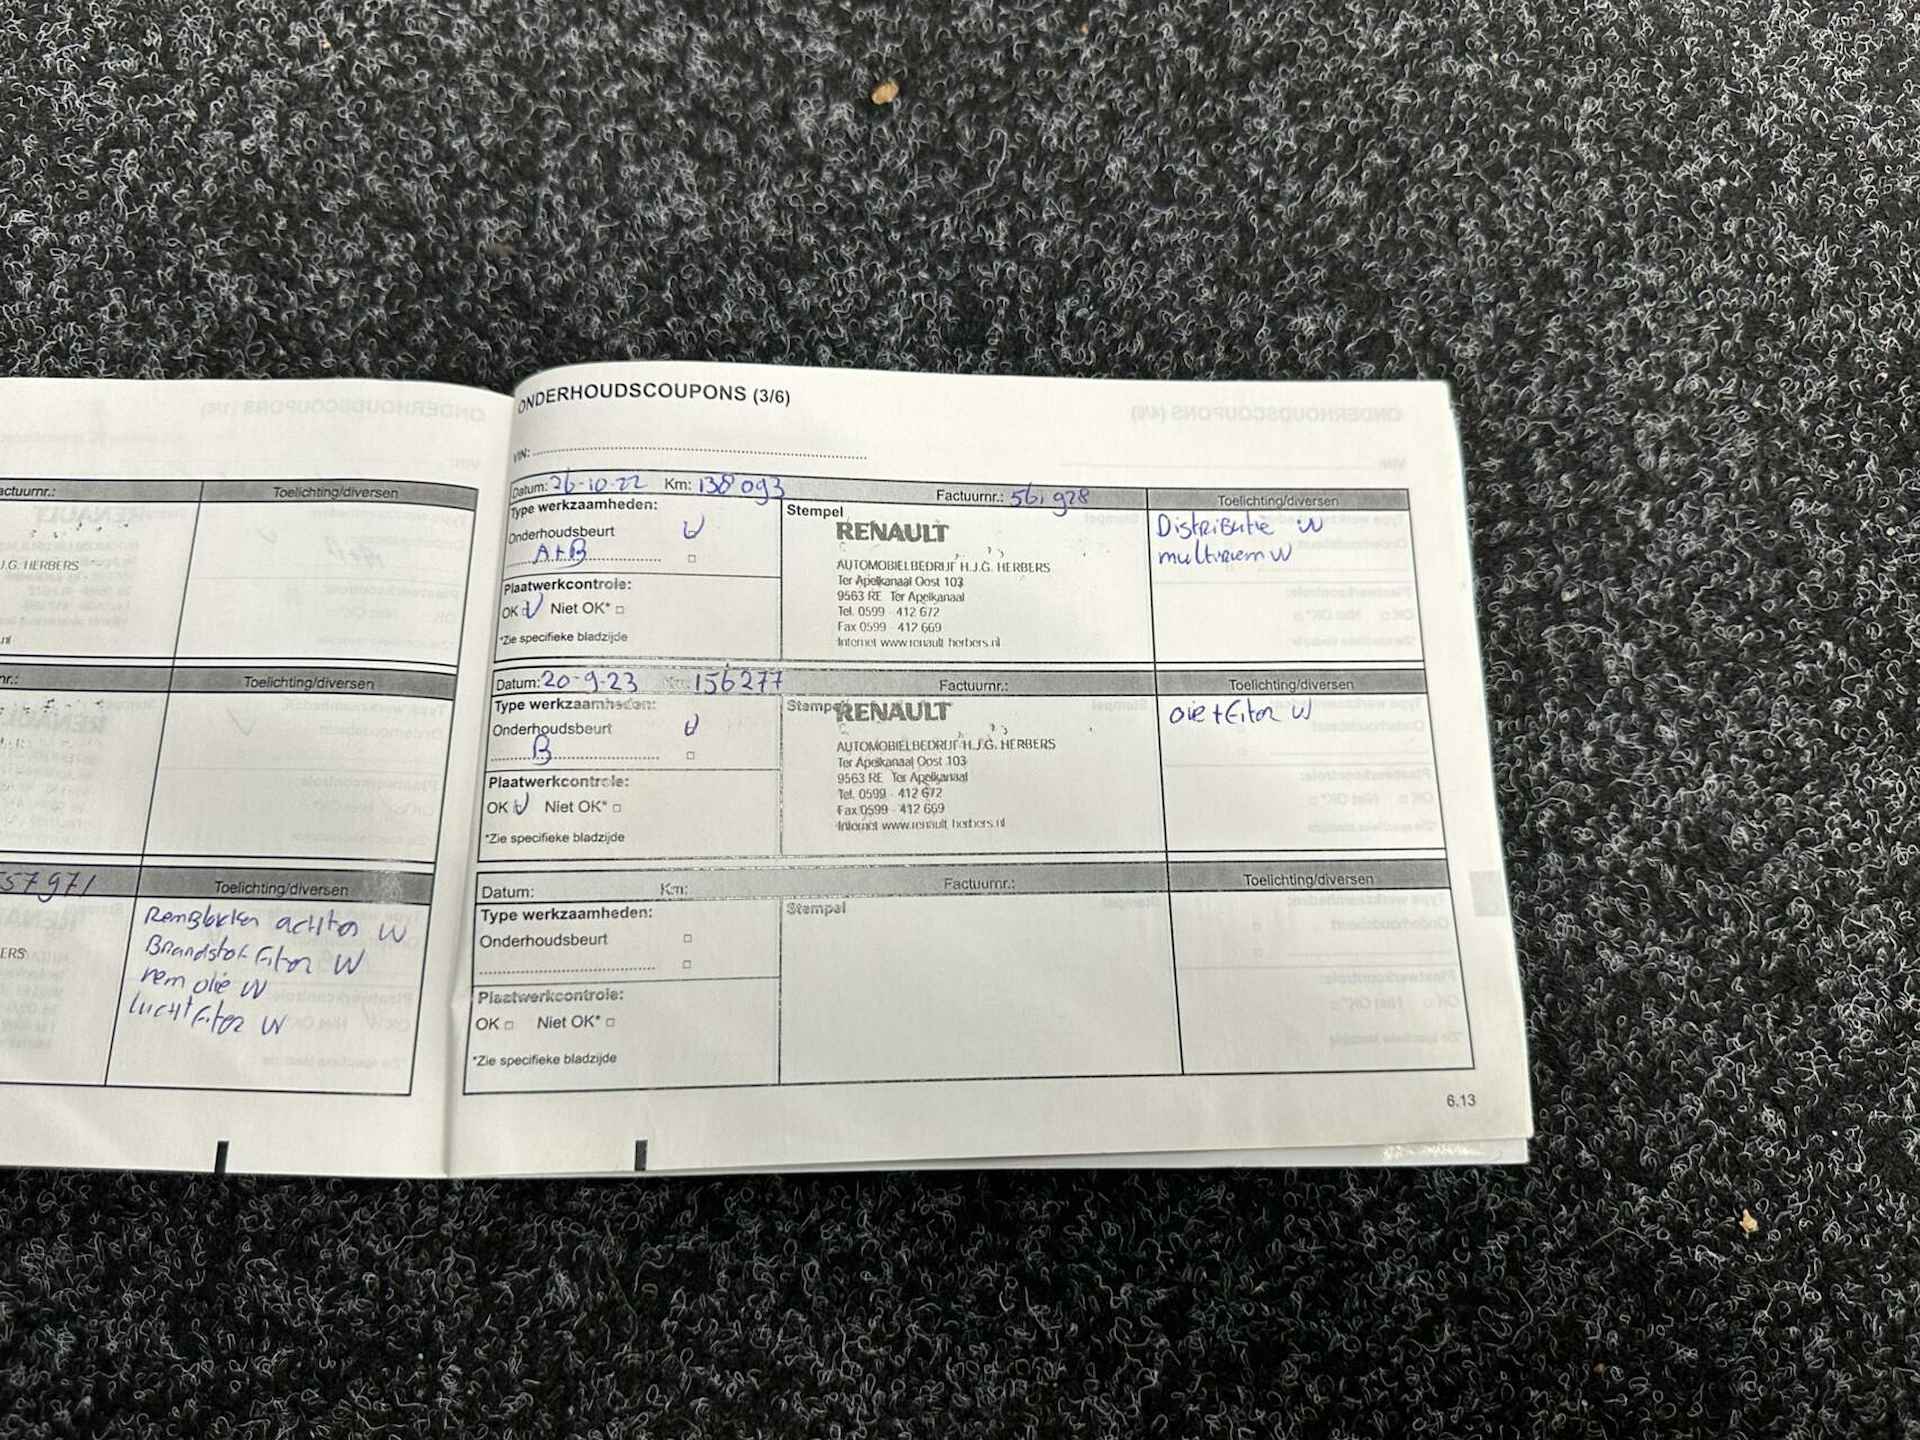 Toelichting/diversen
J.G. HERBERS
Toelichting/diversen
557971
Toelichting/diversen
Remblokken achter W
Brandstof Filter W
rem olie W
lucht Filter W
ONDERHOUDSCOUPONS (3/6)
VIN:
Datum: 26-10-22 Km: 138093 Factuurnr.: 561928 Toelichting/diversen
Type werkzaamheden:
Onderhoudsbeurt
A+B
Plaatwerkcontrole:
OK Niet OK*
*Zie specifieke bladzijde
Stempel
RENAULT
AUTOMOBIELBEDRIJF H.J.G. HERBERS
Ter Apelkanaal Oost 103
9563 RE Ter Apelkanaal
Tel. 0599 - 412 672
Fax 0599 - 412 669
Internet www.renault herbers.nl
Distributie W
multiriem W
Datum: 20-9-23 Km: 156277 Factuurnr.: Toelichting/diversen
Type werkzaamheden:
Onderhoudsbeurt
B
Plaatwerkcontrole:
OK Niet OK*
*Zie specifieke bladzijde
Stempel
RENAULT
AUTOMOBIELBEDRIJF H.J.G. HERBERS
Ter Apelkanaal Oost 103
9563 RE Ter Apelkanaal
Tel. 0599 - 412 672
Fax 0599 - 412 669
Internet www.renault herbers.nl
olie + Filter W
Datum: Km: Factuurnr.: Toelichting/diversen
Type werkzaamheden:
Onderhoudsbeurt
Plaatwerkcontrole:
OK Niet OK*
*Zie specifieke bladzijde
Stempel
6.13